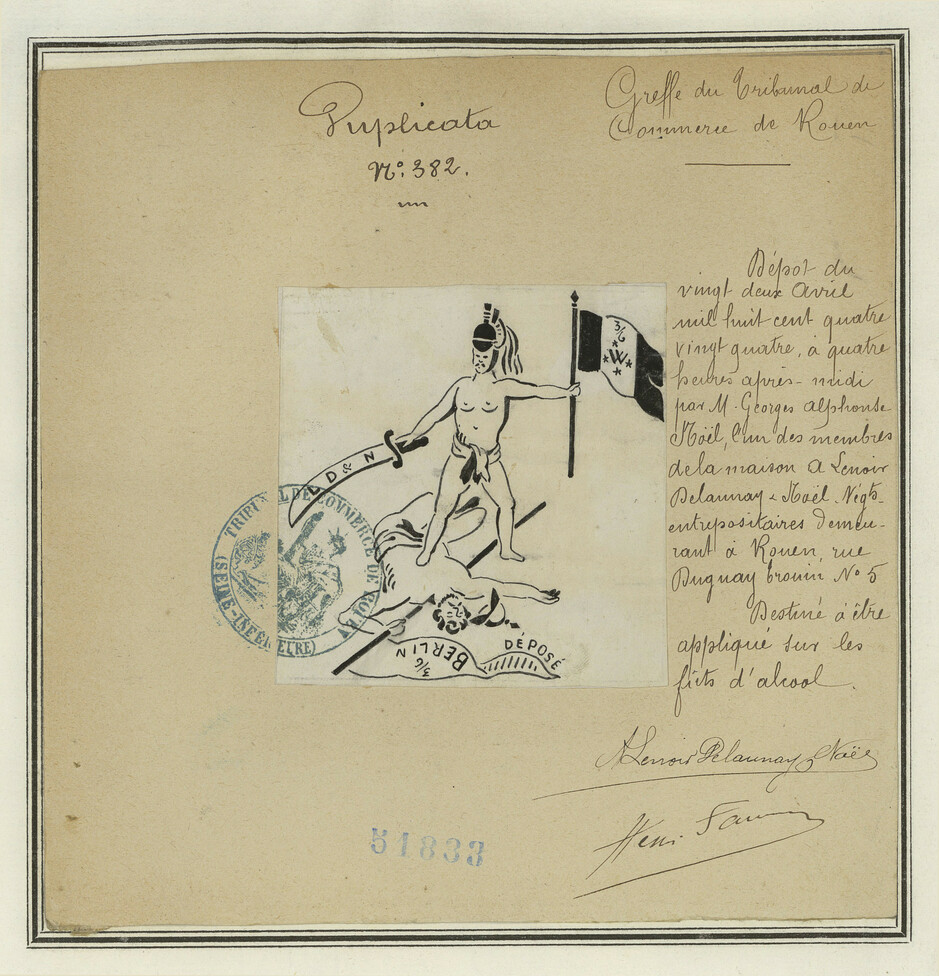 Duplicata
N° 382.
Greffe du Tribunal de
Commerce de Rouen
Dépot du
vingt deux Avril
mil huit cent quatre
vingt quatre, à quatre
heures après-midi
par M. Georges Alphonse
Noël, l'un des membres
de la maison A Lenoir
Delaunay & Noël Négts
entrepositaires demeu-
rant à Rouen, rue
Duguay trouin N° 5
Destiné à être
appliqué sur les
fûts d'alcool.
3/6
W
L D & N
3/6 BERLIN
DÉPOSÉ
TRIBUNAL DE COMMERCE DE ROUEN
(SEINE-INFÉRIEURE)
A Lenoir Delaunay & Noël
Henri
51833